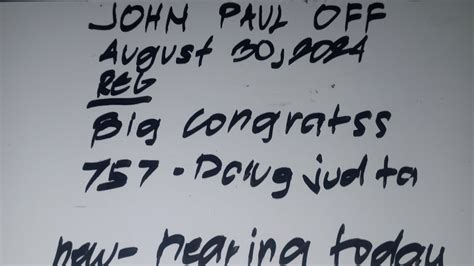 JOHN PAUL OFF
August 30, 2024
REG
Big congratss
757 - Daug jud ta
new - hearing today